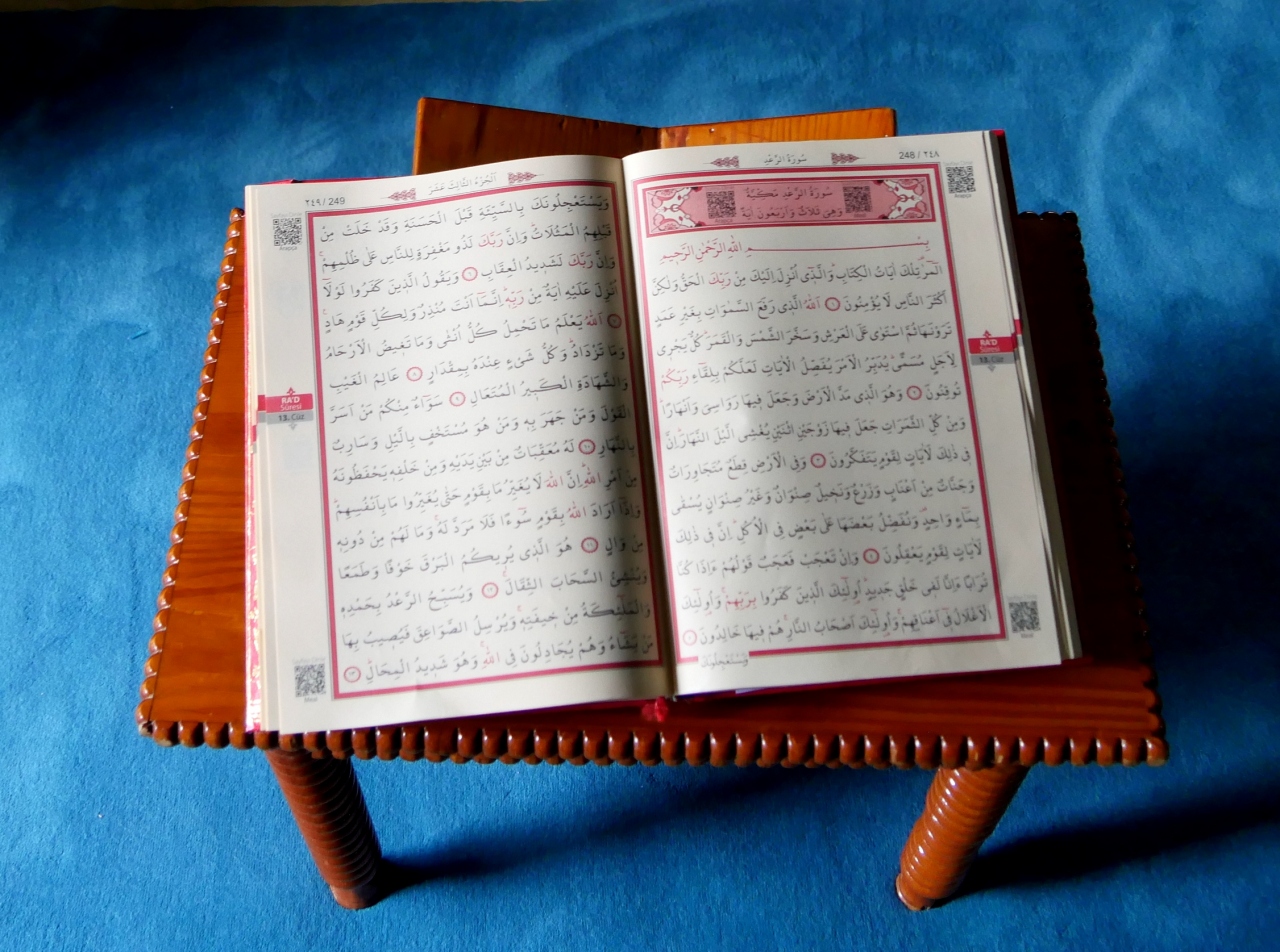 سُورَةُ الرَّعْدِ
248 / ٢٤٨
سُورَةُ الرَّعْدِ مَكِّيَّةٌ
وَهِىَ ثَلَاثٌ وَاَرْبَعُونَ اٰيَةً
بِسْــــــمِ اللّٰهِ الرَّحْمٰنِ الرَّحِيمِ
الٓمٓرٰ۠ تِلْكَ اٰيَاتُ الْكِتَابِۜ وَالَّذ۪ٓى اُنْزِلَ اِلَيْكَ مِنْ رَبِّكَ الْحَقُّ وَلٰكِنَّ
اَكْثَرَ النَّاسِ لَا يُؤْمِنُونَ ﴿١﴾ اَللّٰهُ الَّذ۪ى رَفَعَ السَّمٰوَاتِ بِغَيْرِ عَمَدٍ
تَرَوْنَهَا ثُمَّ اسْتَوٰى عَلَى الْعَرْشِ وَسَخَّرَ الشَّمْسَ وَالْقَمَرَۜ كُلٌّ يَجْر۪ى
لِاَجَلٍ مُسَمًّىۜ يُدَبِّرُ الْاَمْرَ يُفَصِّلُ الْاٰيَاتِ لَعَلَّكُمْ بِلِقَٓاءِ رَبِّكُمْ
تُوقِنُونَ ﴿٢﴾ وَهُوَ الَّذ۪ى مَدَّ الْاَرْضَ وَجَعَلَ ف۪يهَا رَوَاسِىَ وَاَنْهَارًاۜ
وَمِنْ كُلِّ الثَّمَرَاتِ جَعَلَ ف۪يهَا زَوْجَيْنِ اثْنَيْنِ يُغْشِى الَّيْلَ النَّهَارَۜ اِنَّ
ف۪ى ذٰلِكَ لَاٰيَاتٍ لِقَوْمٍ يَتَفَكَّرُونَ ﴿٣﴾ وَفِى الْاَرْضِ قِطَعٌ مُتَجَاوِرَاتٌ
وَجَنَّاتٌ مِنْ اَعْنَابٍ وَزَرْعٌ وَنَخ۪يلٌ صِنْوَانٌ وَغَيْرُ صِنْوَانٍ يُسْقٰى
بِمَٓاءٍ وَاحِدٍ۠ وَنُفَضِّلُ بَعْضَهَا عَلٰى بَعْضٍ فِى الْاُكُلِۜ اِنَّ ف۪ى ذٰلِكَ
لَاٰيَاتٍ لِقَوْمٍ يَعْقِلُونَ ﴿٤﴾ وَاِنْ تَعْجَبْ فَعَجَبٌ قَوْلُهُمْ ءَاِذَا كُنَّا
تُرَابًا ءَاِنَّا لَف۪ى خَلْقٍ جَد۪يدٍۜ اُو۬لٰٓئِكَ الَّذ۪ينَ كَفَرُوا بِرَبِّهِمْۚ وَاُو۬لٰٓئِكَ
الْاَغْلَالُ ف۪ٓى اَعْنَاقِهِمْۚ وَاُو۬لٰٓئِكَ اَصْحَابُ النَّارِۚ هُمْ ف۪يهَا خَالِدُونَ ﴿٥﴾
وَيَسْتَعْجِلُونَكَ
RA'D
Sûresi
13. Cüz
اَلْجُزْءُ الثَّالِثَ عَشَرَ
٢٤٩ / 249
وَيَسْتَعْجِلُونَكَ بِالسَّيِّئَةِ قَبْلَ الْحَسَنَةِ وَقَدْ خَلَتْ مِنْ
قَبْلِهِمُ الْمَثُلَاتُۜ وَاِنَّ رَبَّكَ لَذُو مَغْفِرَةٍ لِلنَّاسِ عَلٰى ظُلْمِهِمْۚ
وَاِنَّ رَبَّكَ لَشَد۪يدُ الْعِقَابِ ﴿٦﴾ وَيَقُولُ الَّذ۪ينَ كَفَرُوا لَوْلَٓا
اُنْزِلَ عَلَيْهِ اٰيَةٌ مِنْ رَبِّه۪ۜ اِنَّمَٓا اَنْتَ مُنْذِرٌ وَلِكُلِّ قَوْمٍ هَادٍ۟
﴿٧﴾ اَللّٰهُ يَعْلَمُ مَا تَحْمِلُ كُلُّ اُنْثٰى وَمَا تَغ۪يضُ الْاَرْحَامُ
وَمَا تَزْدَادُۜ وَكُلُّ شَىْءٍ عِنْدَهُ بِمِقْدَارٍ ﴿٨﴾ عَالِمُ الْغَيْبِ
وَالشَّهَادَةِ الْكَب۪يرُ الْمُتَعَالِ ﴿٩﴾ سَوَٓاءٌ مِنْكُمْ مَنْ اَسَرَّ
الْقَوْلَ وَمَنْ جَهَرَ بِه۪ وَمَنْ هُوَ مُسْتَخْفٍ بِالَّيْلِ وَسَارِبٌ
بِالنَّهَارِ ﴿١٠﴾ لَهُ مُعَقِّبَاتٌ مِنْ بَيْنِ يَدَيْهِ وَمِنْ خَلْفِه۪ يَحْفَظُونَهُ
مِنْ اَمْرِ اللّٰهِۜ اِنَّ اللّٰهَ لَا يُغَيِّرُ مَا بِقَوْمٍ حَتّٰى يُغَيِّرُوا مَا بِاَنْفُسِهِمْۜ
وَاِذَٓا اَرَادَ اللّٰهُ بِقَوْمٍ سُٓوءًا فَلَا مَرَدَّ لَهُۚ وَمَا لَهُمْ مِنْ دُونِه۪
مِنْ وَالٍ ﴿١١﴾ هُوَ الَّذ۪ى يُر۪يكُمُ الْبَرْقَ خَوْفًا وَطَمَعًا
وَيُنْشِئُ السَّحَابَ الثِّقَالَۚ ﴿١٢﴾ وَيُسَبِّحُ الرَّعْدُ بِحَمْدِه۪
وَالْمَلٰٓئِكَةُ مِنْ خ۪يفَتِه۪ۚ وَيُرْسِلُ الصَّوَاعِقَ فَيُص۪يبُ بِهَا
مَنْ يَشَٓاءُ وَهُمْ يُجَادِلُونَ فِى اللّٰهِۚ وَهُوَ شَد۪يدُ الْمِحَالِۜ ﴿١٣﴾
RA'D
Sûresi
13. Cüz